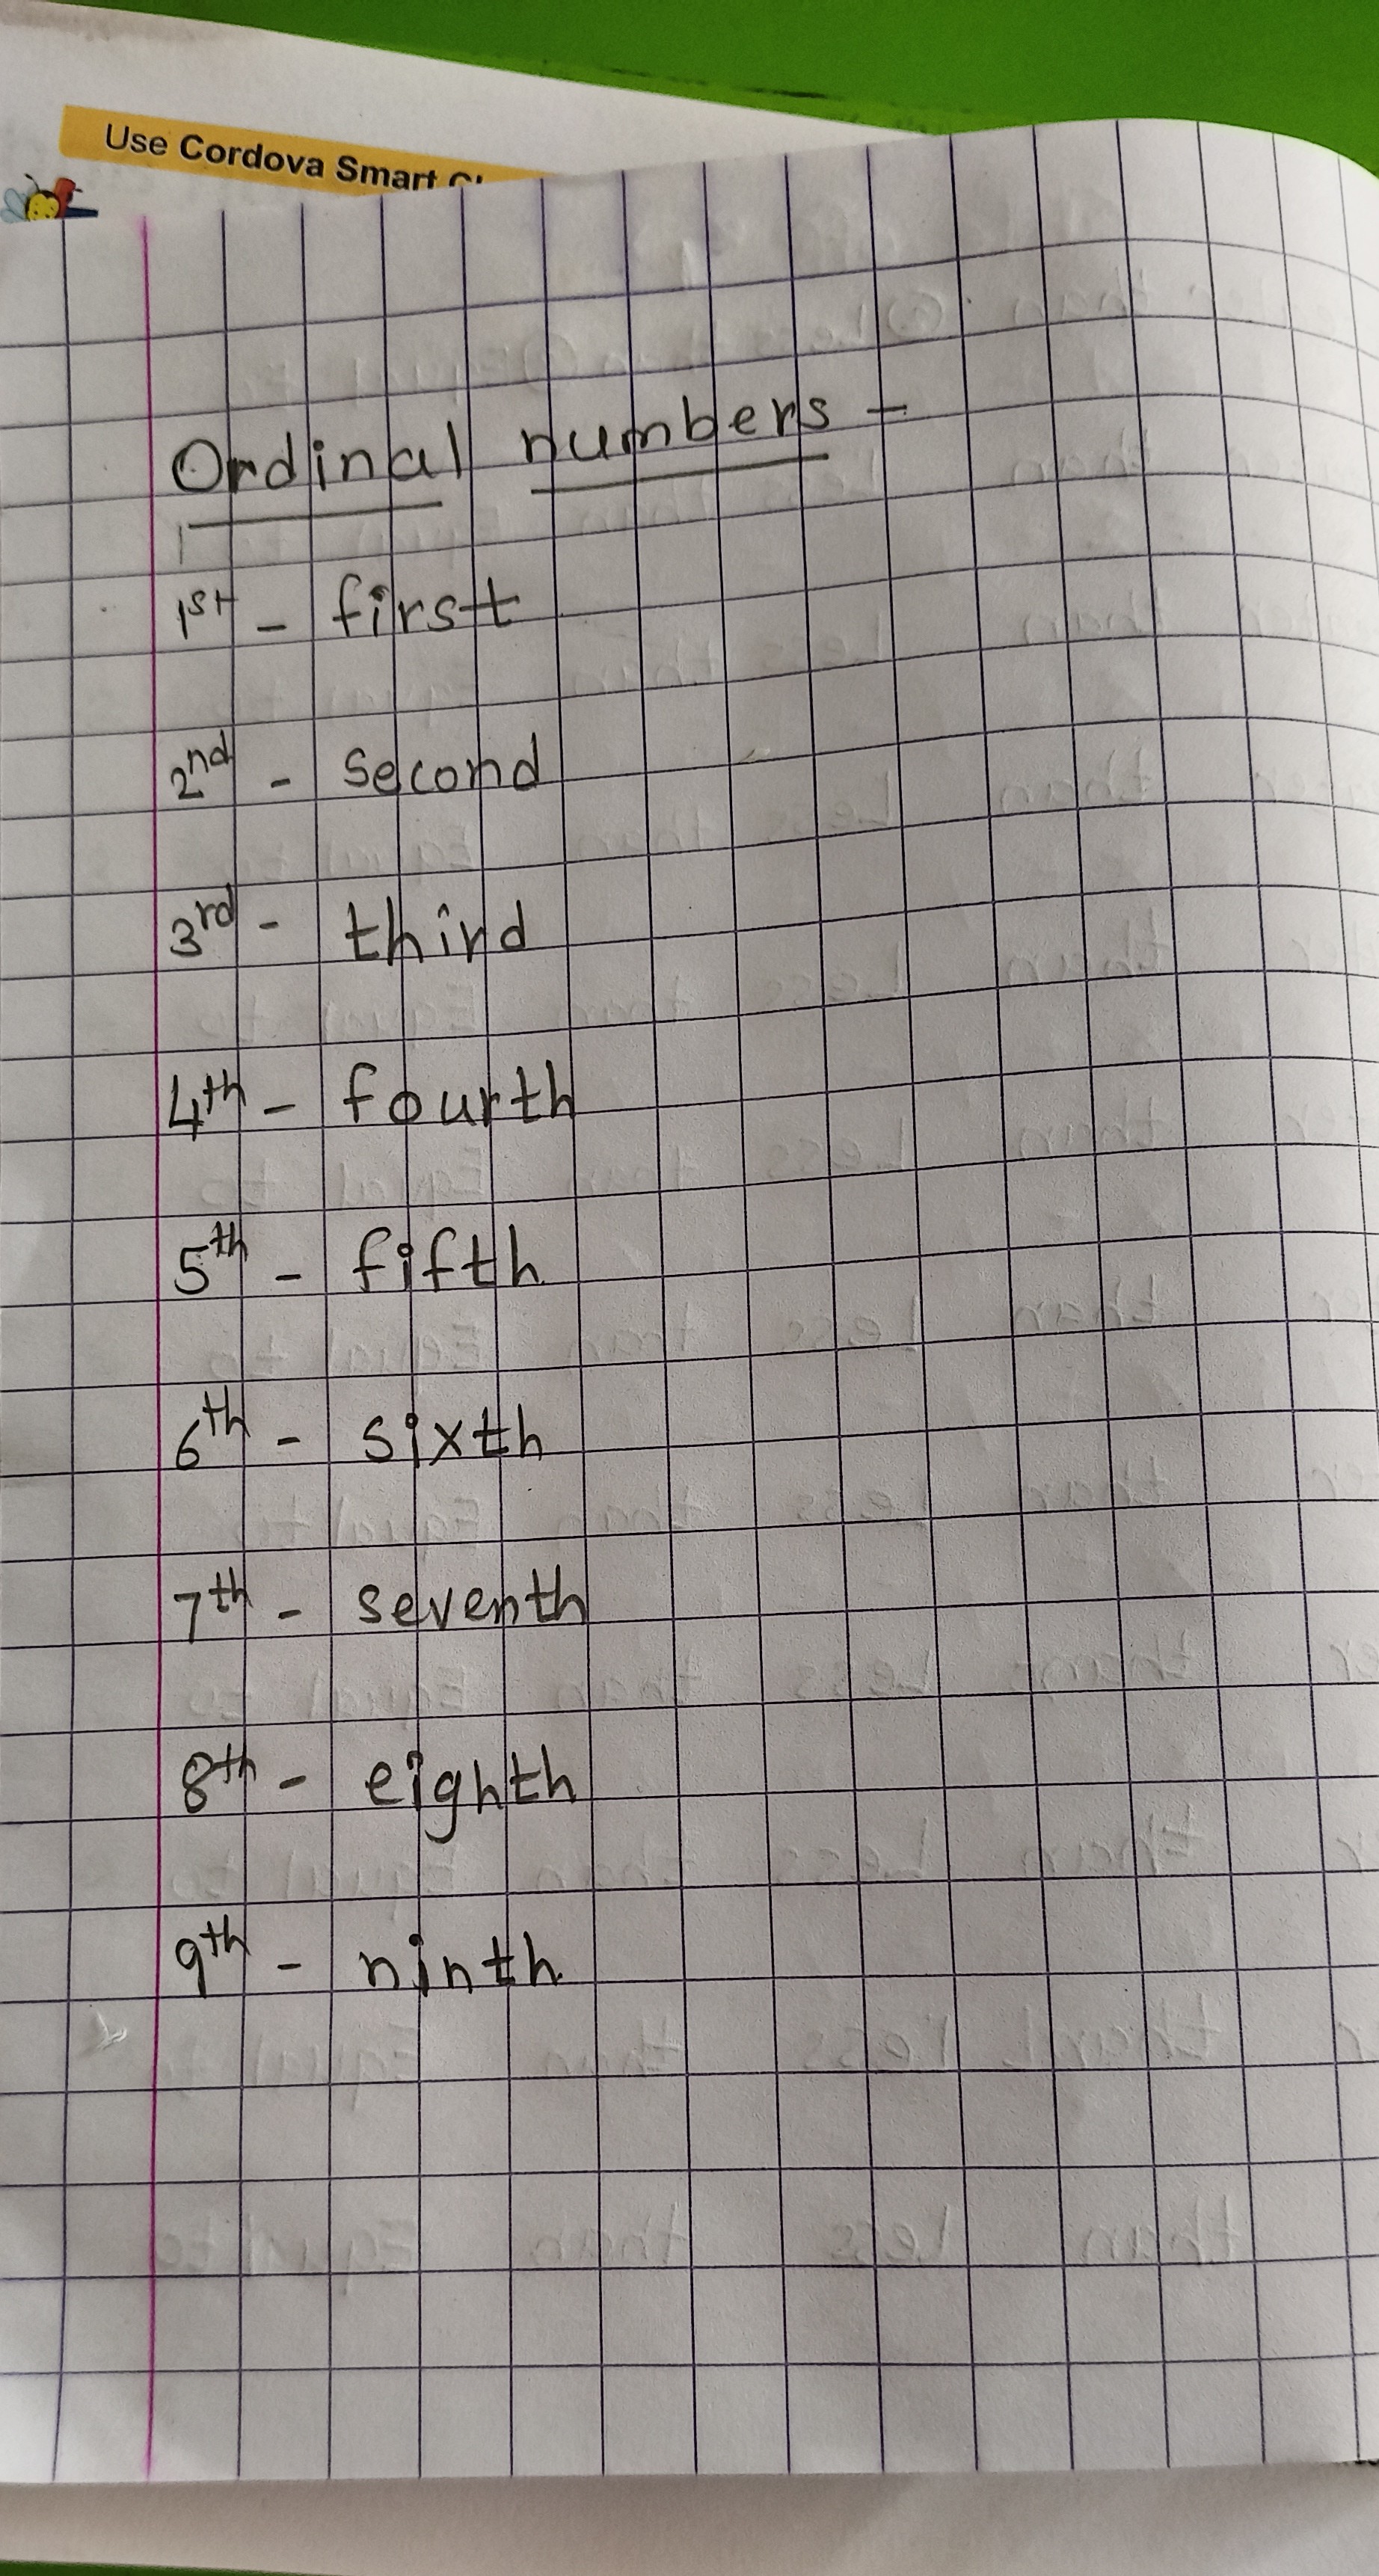 Use Cordova Smart
Ordinal numbers -
1st - first
2nd - second
3rd - third
4th - fourth
5th - fifth
6th - sixth
7th - seventh
8th - eighth
9th - ninth